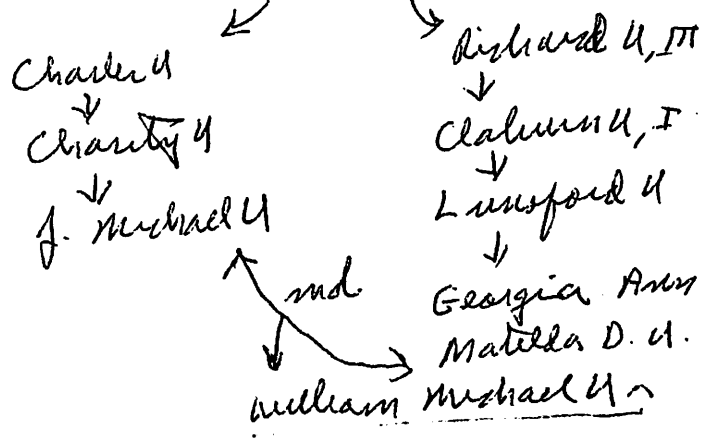 Charles U
Charity U
J. Michael U
md.
Richard U, III
Claburn U, I
Lunsford U
Georgia Ann
Matilda D. U.
William Michael U